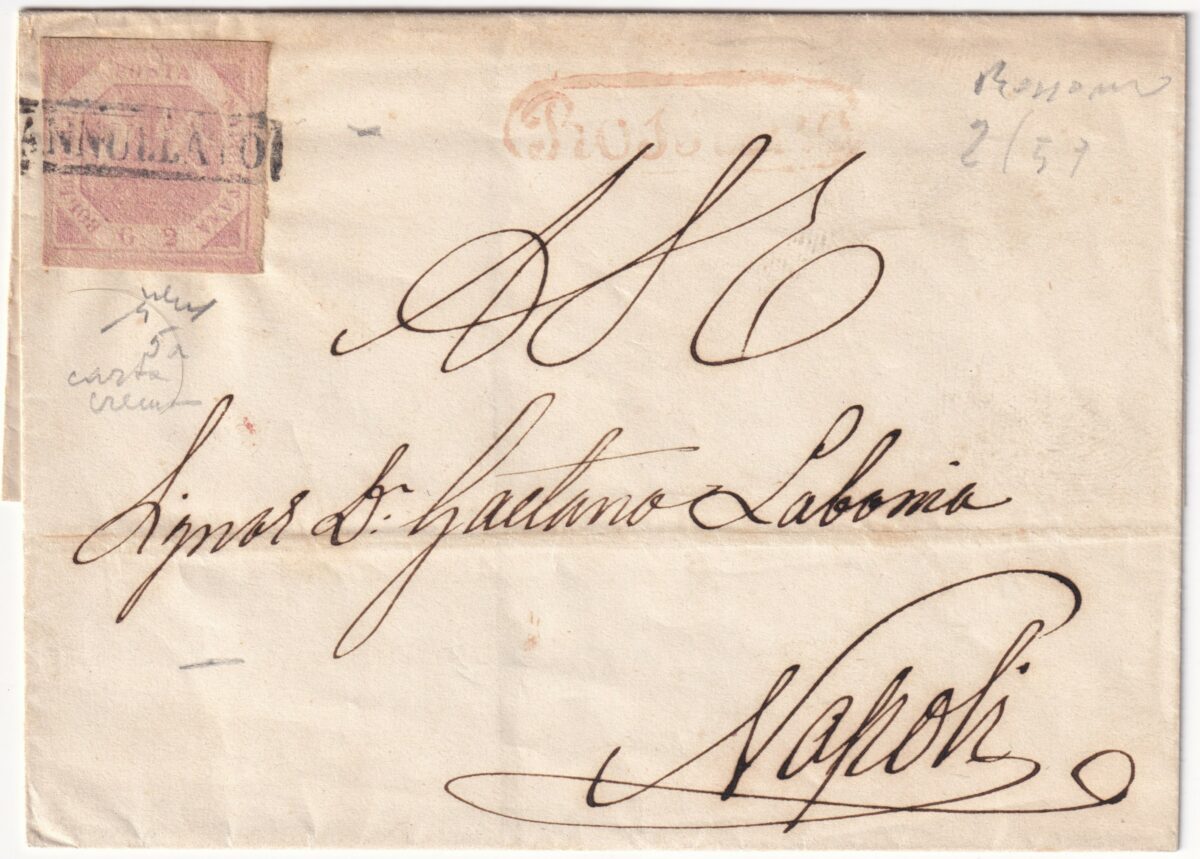 POSTA NAPOLETANA
BOLLO
G. 2
ANNULLATO
Rossano
Rossano
2/59
A S E
5a
carta
crema
Signor Dr. Gaetano Labonia
Napoli